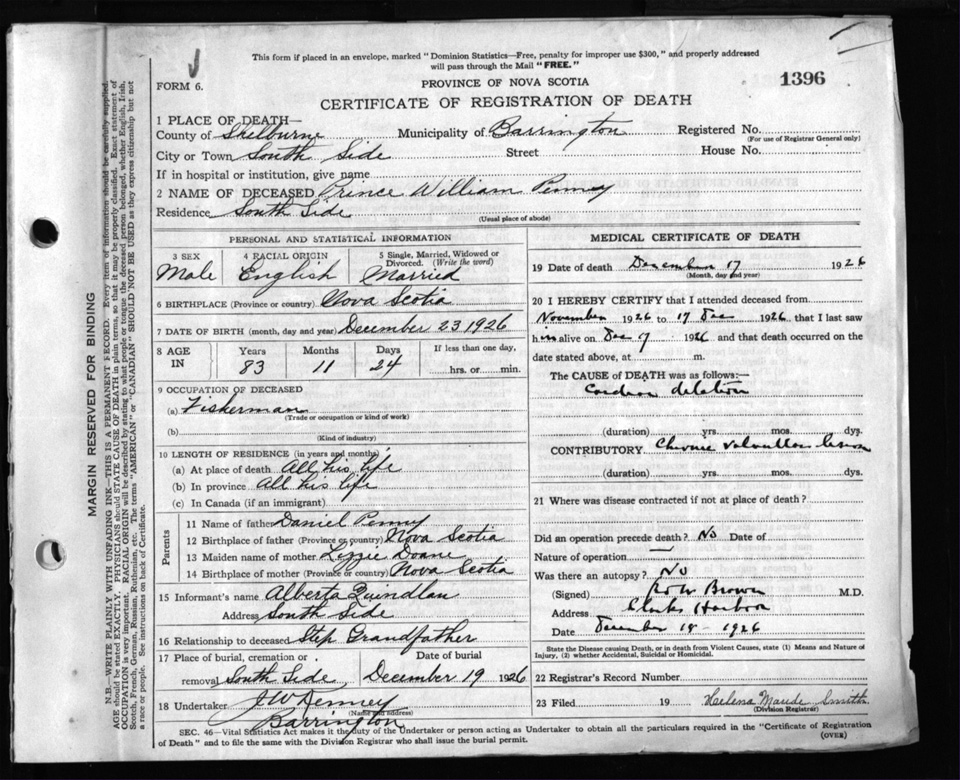 This form if placed in an envelope, marked "Dominion Statistics—Free, penalty for improper use $300," and properly addressed
will pass through the Mail "FREE."
FORM 6.
PROVINCE OF NOVA SCOTIA
1396
CERTIFICATE OF REGISTRATION OF DEATH
1 PLACE OF DEATH—
County of Shelburne Municipality of Barrington Registered No.
(For use of Registrar General only)
City or Town South Side Street House No.
If in hospital or institution, give name
2 NAME OF DECEASED Prince William Penney
Residence South Side
(Usual place of abode)
PERSONAL AND STATISTICAL INFORMATION
3 SEX 4 RACIAL ORIGIN 5 Single, Married, Widowed or Divorced. (Write the word)
Male English Married
6 BIRTHPLACE (Province or country) Nova Scotia
7 DATE OF BIRTH (month, day and year) December 23 1926
8 AGE IN Years Months Days If less than one day,
83 11 24 hrs. or min.
9 OCCUPATION OF DECEASED
(a) Fisherman
(Trade or occupation or kind of work)
(b)
(Kind of industry)
10 LENGTH OF RESIDENCE (in years and months)
(a) At place of death All his life
(b) In province All his life
(c) In Canada (if an immigrant)
Parents
11 Name of father Daniel Penny
12 Birthplace of father (Province or country) Nova Scotia
13 Maiden name of mother Lizzie Doane
14 Birthplace of mother (Province or country) Nova Scotia
15 Informant's name Alberta Quindlan
Address South Side
16 Relationship to deceased Step Grandfather
17 Place of burial, cremation or Date of burial
removal South Side December 19 1926
18 Undertaker J W Denney
(Name and address)
Barrington
MEDICAL CERTIFICATE OF DEATH
19 Date of death December 17 1926
(Month, day and year)
20 I HEREBY CERTIFY that I attended deceased from
November 1926 to 17 Dec 1926, that I last saw
him alive on Dec 17 1926 and that death occurred on the
date stated above, at m.
The CAUSE of DEATH was as follows:—
(duration) yrs. mos. dys.
CONTRIBUTORY Chronic lesion
(duration) yrs. mos. dys.
21 Where was disease contracted if not at place of death?
Did an operation precede death? No Date of
Nature of operation —
Was there an autopsy? No
(Signed) Brown M.D.
Address Clarks Harbor
Date December 18 - 1926
State the Disease causing Death, or in death from Violent Causes, state (1) Means and Nature of
Injury, (2) whether Accidental, Suicidal or Homicidal.
22 Registrar's Record Number
23 Filed 19 Helena Maude Smith
(Division Registrar)
SEC. 46—Vital Statistics Act makes it the duty of the Undertaker or person acting as Undertaker to obtain all the particulars required in the "Certificate of Registration
of Death" and to file the same with the Division Registrar who shall issue the burial permit.
(OVER)
MARGIN RESERVED FOR BINDING
N.B.—WRITE PLAINLY WITH UNFADING INK—THIS IS A PERMANENT RECORD. Every item of information should be carefully supplied.
AGE should be stated EXACTLY. PHYSICIANS should STATE CAUSE OF DEATH in plain terms, so that it may be properly classified. Exact statement of
OCCUPATION is very important. RACIAL ORIGIN will be described by stating to what people or tongue the deceased person belonged, whether English, Irish,
Scotch, French, German, Russian, Ruthenian, etc. The terms "AMERICAN" or "CANADIAN" SHOULD NOT BE USED as they express citizenship but not
a race or people. See instructions on back of Certificate.